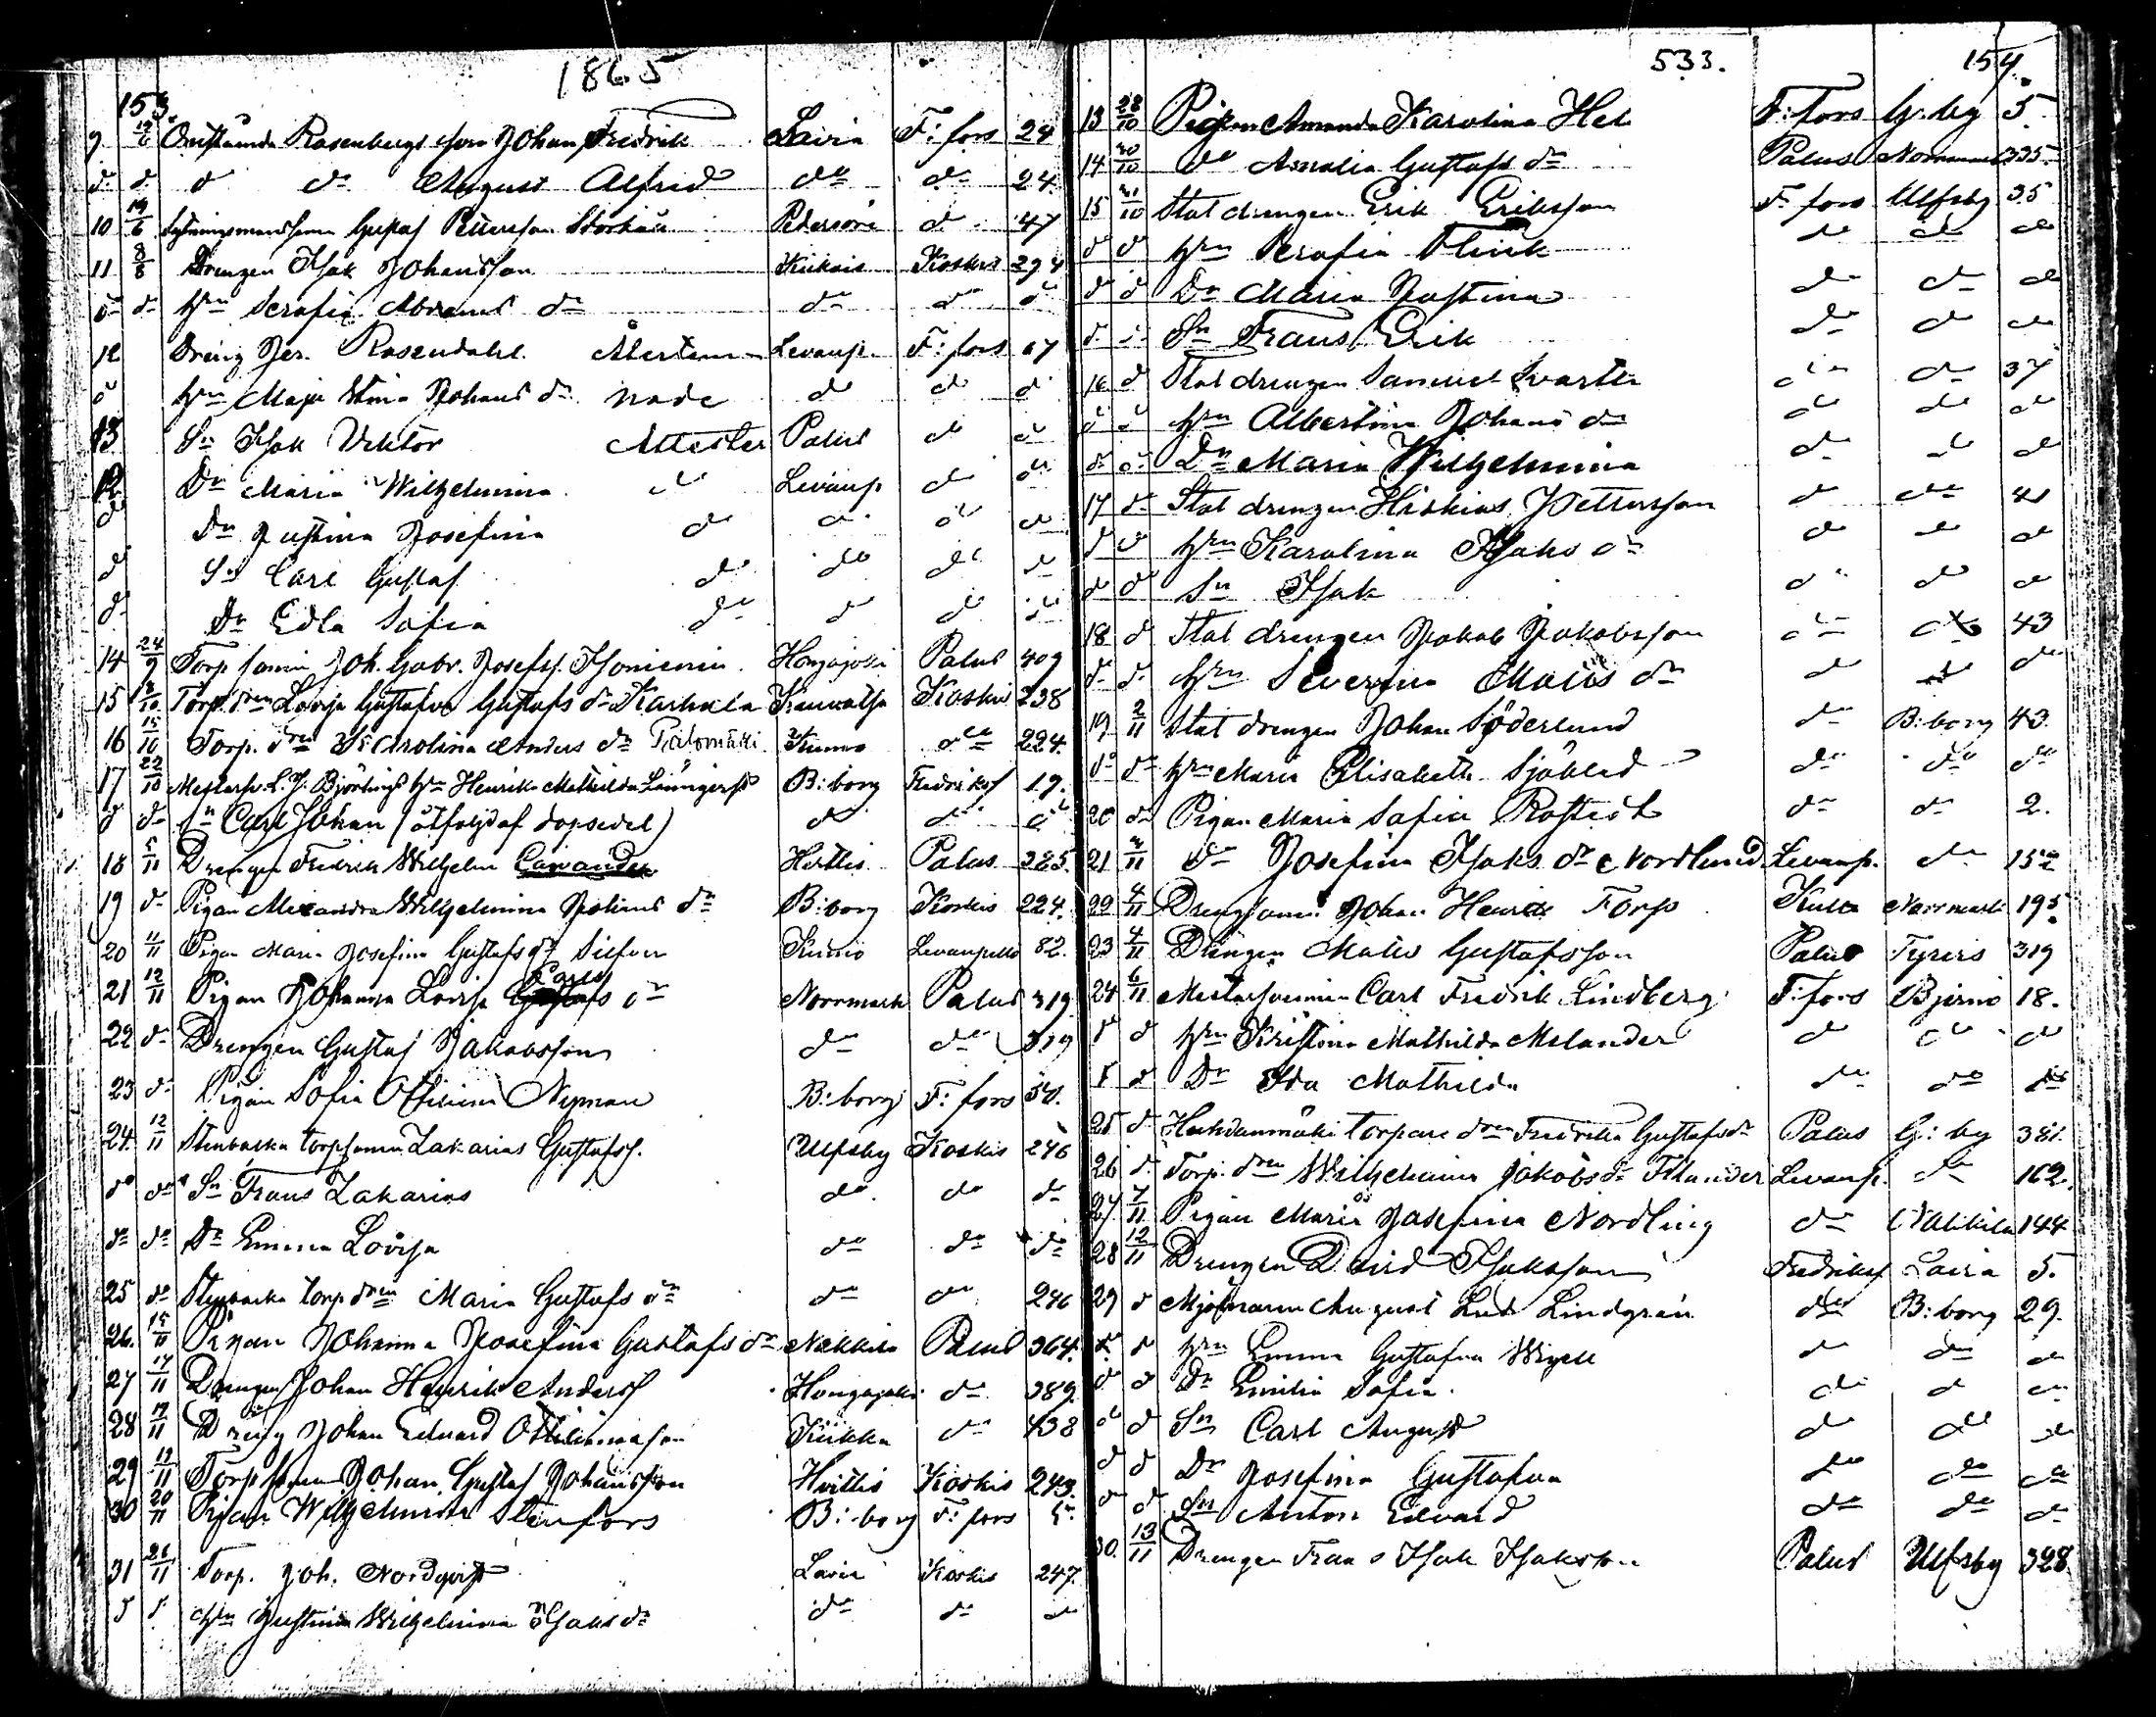 1865
153.
9 19/6 Rosenbergs son Johan Fredrik Lavia F: fors 24
do do do do August Alfred do do 24
10 19/6 Gustaf Pettersson Storkåå Pedersöre do 47
11 8/8 Drengen Isak Johansson Kiukais Koskis 294
do do hn Serafia Abrams dr do do do
12 Dreng Jer. Rosendahl Återtem- Levanp. F: fors 67
do hn Maja Stina Johans dr nade do do do
13 Sn Isak Viktor Attester Palus do do
12 Dr Maria Wilhelmina do Levanp do do
do Dr Justina Josefina do do do do
do Sn Carl Gustaf do do do do
do Dr Edla Sofia do do do do
14 24/9 Torp sonen Joh. Gabr. Josefss. Isoniemi Hongojoki Palus 409
15 8/10 Torp. dren Lovisa Gustafva Gustafs dr Karhula Kauvatsa Koskis 238
16 15/10 Torp. dren Karolina Anders dr Palomäki Kumo do 224.
17 22/10 Björlings hn Henrika Mathilda B: borg Fredriksf 19.
do do Sn Carl Johan (åtföljd af dopsedel) do do do
18 5/11 Drengen Fredrik Wilhelm Cawander Hvittis Palus 385.
19 do Pigan Alexandra Wilhelmina Johans dr B: borg Koskis 224.
20 11/11 Pigan Maria Josefina Gustafs dr Silfven Kumo Levanpello 82.
21 12/11 Pigan Johanna Lovisa Carls dr Norrmark Palus 319.
22 do Drengen Gustaf Jakobsson do do 319
23 do Pigan Sofia Ottiliana Nyman B: borg F: fors 54.
24. 12/11 Stenbacka torpsonen Zakarias Gustafss. Ulfsby Koskis 246
do do Sn Frans Zakarias do do do
do do Dr Emma Lovisa do do do
25 do Stenbacka torp dren Maria Gustafs dr do do 246
26. 15/11 Pigan Johanna Josefina Gustafs dr Nakkila Palus 364.
27 17/11 Drengen Johan Henrik Anderss Hongojoki do 389.
28 17/11 Dreng Johan Edvard Ottilianason Kiikka do 438
29 19/11 Torpsonen Johan Gustaf Johansson Hvittis Koskis 243.
30 20/11 Pigan Wilhelmina Stenfors B: borg F: fors 5.
31 26/11 Torp. Joh. Nordqvist Lavia Koskis 247.
do do hn Justina Wilhelmina Isaks dr do do do
533.
154.
13 28/10 Pigan Amanda Karolina Hel F: fors G: by 5
14 30/10 do Amalia Gustafs dr Palus Norrmark 335.
15 31/10 Stat drengen Erik Eriksson F. fors Ulfsby 35
do do hrn Serafia Flink do do do
do do Dr Maria Justina do do do
do do Sn Frans Erik do do do
16 do Stat drengen Samuel Svartti do do 37
do do hrn Albertina Johans dr do do do
do do Dr Maria Wilhelmina do do do
17 do Stat drengen Hiskias Pettersson do do 41
do do hrn Karolina Isaks dr do do do
do do Sn Isak do do do
18 do Stat drengen Jakob Jakobsson do do 43
do do hrn Severina Matts dr do do do
19 2/11 Stat drengen Johan Söderlund do B: borg 43.
do do hrn Maria Elisabeth Sjöblad do do do
20 do Pigan Maria Sofia Rostedt do do 2.
21 3/11 do Josefina Isaks dr Nordlund Levanp. do 152
22 4/11 Drengsonen Johan Henrik Torp Kulla Norrmark 195
23 4/11 Drengen Matts Gustafsson Palus Tyrvis 319
24 6/11 Mästarsvennen Carl Fredrik Lindberg F: fors Bjerno 18.
do do hrn Kristina Mathilda Melander do do do
do do Dr Ida Mathilda do do do
25 do torpare dren Fredrika Gustafs dr Palus G: by 381.
26 do Torp. dren Wilhelmina Jakobs dr Filander Levanp. do 162.
27. 7/11 Pigan Maria Josefina Nordling do Nakkila 144
28 12/11 Drengen David Isaksson Fredriksf. Lavia 5.
29 do Mjölnaren August Lud Lindgrén do B: borg 29.
do do hrn Emma Gustafva Wigell do do do
do do Dr Emilia Sofia do do do
do do Sn Carl August do do do
do do Dr Josefina Gustafva do do do
do do Sn Anton Edvard do do do
30. 13/11 Drengen Frans Isak Isaksson Palus Ulfsby 328